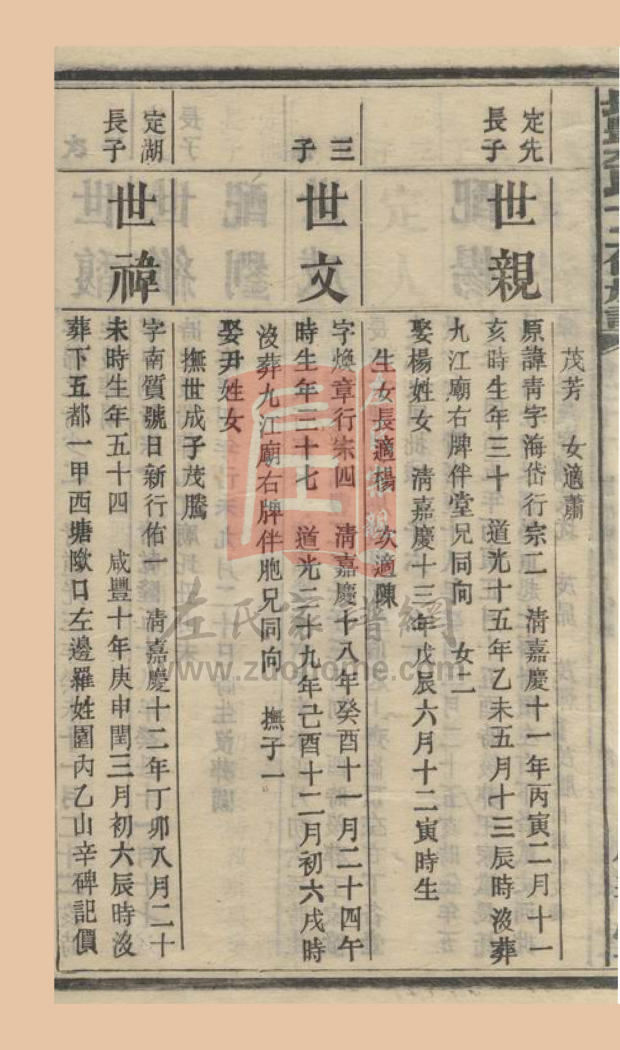 茂芳 女適蕭
定先長子
世親
原諱青字海岱行宗二 清嘉慶十一年丙寅二月十一
亥時生年三十 道光十五年乙未五月十三辰時沒葬
九江廟右牌伴堂兄同向 女二
娶楊姓女 清嘉慶十三年戊辰六月十二寅時生
生女長適楊 次適陳
三子
世文
字煥章行宗四 清嘉慶十八年癸酉十一月二十四午
時生年三十七 道光二十九年己酉十二月初六戌時
沒葬九江廟右牌伴胞兄同向 撫子一
娶尹姓女
撫世成子茂騰
定湖長子
世禕
字南質號日新行佑一 清嘉慶十二年丁卯八月二十
未時生年五十四 咸豐十年庚申閏三月初六辰時沒
葬下五都一甲西塘墩口左邊羅姓園內乙山辛碑記價
左氏宗譜網
www.zuohome.com